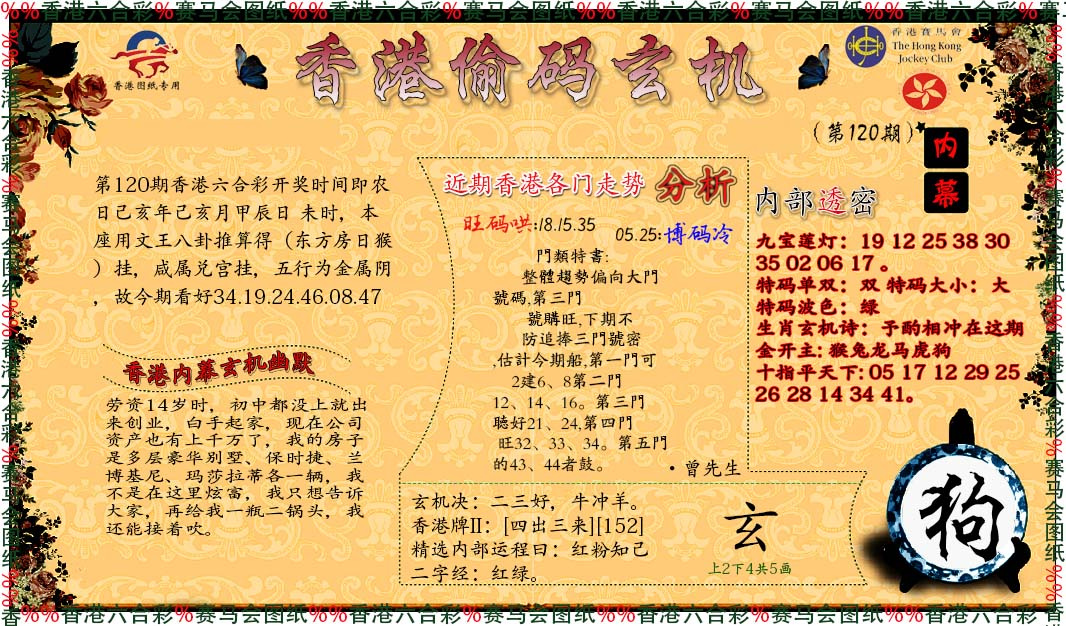 %%香港六合彩%赛马会图纸%%香港六合彩%赛马会图纸%%香港六合彩%赛马会图纸%%香港六合彩%赛马
香港图纸专用
香港偷码玄机
香港賽馬會
The Hong Kong
Jockey Club
(第120期)
内
幕
第120期香港六合彩开奖时间即农
日己亥年己亥月甲辰日 未时，本
座用文王八卦推算得（东方房日猴
）挂，咸属兑宫挂，五行为金属阴
，故今期看好34.19.24.46.08.47
香港内幕玄机幽默
劳资14岁时，初中都没上就出
来创业，白手起家，现在公司
资产也有上千万了，我的房子
是多层豪华别墅、保时捷、兰
博基尼、玛莎拉蒂各一辆，我
不是在这里炫富，我只想告诉
大家，再给我一瓶二锅头，我
还能接着吹。
近期香港各门走势 分析
旺码哄:18.15.35
05.25:博码冷
門類特書:
整體趨勢偏向大門
號碼,第三門
號購旺,下期不
防追捧三門號密
,估計今期船,第一門可
2建6、8第二門
12、14、16。第三門
聽好21、24,第四門
旺32、33、34。第五門
的43、44者鼓。
·曾先生
内部透密
九宝莲灯：19 12 25 38 30
35 02 06 17 。
特码单双：双 特码大小：大
特码波色：绿
生肖玄机诗：予酌相冲在这期
金开主: 猴兔龙马虎狗
十指平天下: 05 17 12 29 25
26 28 14 34 41。
玄机决：二三好，牛冲羊。
香港牌II：[四出三来][152]
精选内部运程曰：红粉知己
二字经：红绿。
玄
上2下4共5画
狗
香%%香港六合彩%赛马会图纸%%香港六合彩%赛马会图纸%%香港六合彩%赛马会图纸%%香港六合彩